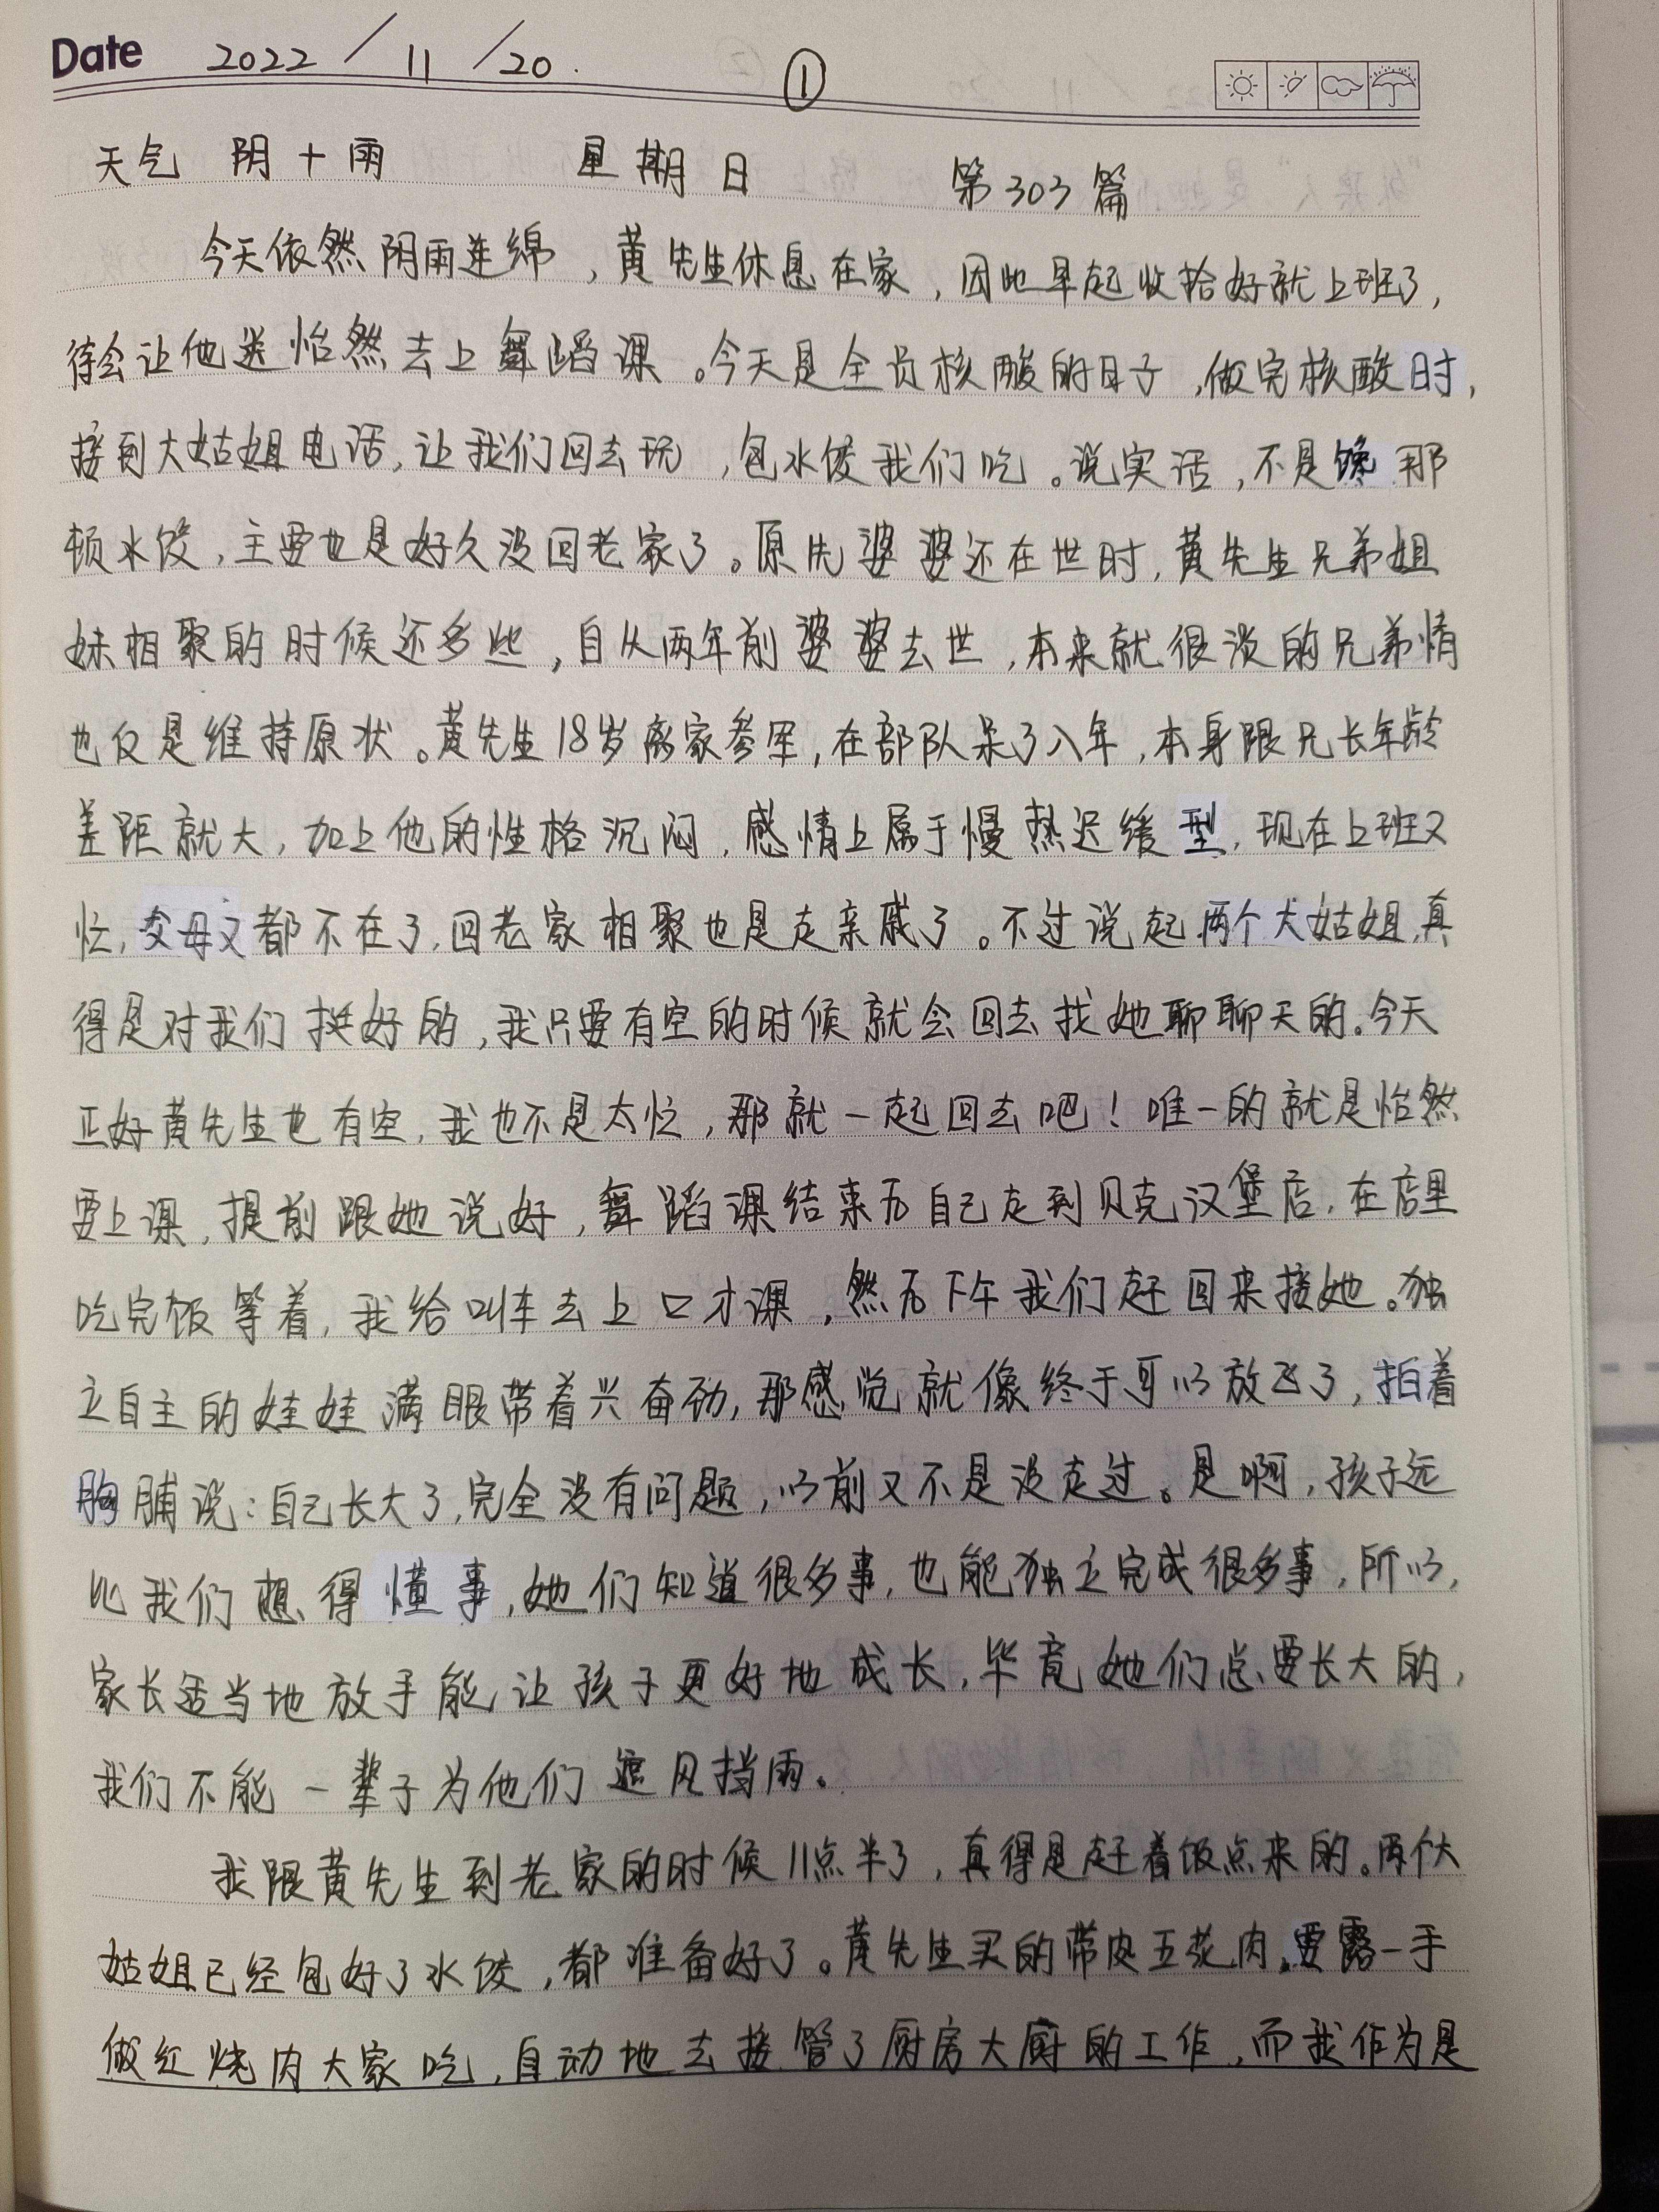 Date 2022/11/20. ①
天气 阴+雨 星期日 第303篇
今天依然阴雨连绵，黄先生休息在家，因此早起收拾好就上班了，
待会让他送怡然去上舞蹈课。今天是全员核酸的日子，做完核酸时，
接到大姑姐电话，让我们回去玩，包水饺我们吃。说实话，不是馋那
顿水饺，主要也是好久没回老家了。原先婆婆还在世时，黄先生兄弟姐
妹相聚的时候还多些，自从两年前婆婆去世，本来就很淡的兄弟情
也仅是维持原状。黄先生18岁离家参军，在部队呆了八年，本身跟兄长年龄
差距就大，加上他的性格沉闷，感情上属于慢热迟缓型，现在上班又
忙，父母又都不在了，回老家相聚也是走亲戚了。不过说起两个大姑姐，真
得是对我们挺好的，我只要有空的时候就会回去找她聊聊天的。今天
正好黄先生也有空，我也不是太忙，那就一起回去吧！唯一的就是怡然
要上课，提前跟她说好，舞蹈课结束后自己走到贝克汉堡店，在店里
吃完饭等着，我给叫车去上口才课，然后下午我们赶回来接她。独
立自主的娃娃满眼带着兴奋劲，那感觉就像终于可以放飞了，拍着
胸脯说：自己长大了，完全没有问题，以前又不是没走过。是啊，孩子远
比我们想得懂事，她们知道很多事，也能独立完成很多事，所以，
家长适当地放手能让孩子更好地成长，毕竟她们总要长大的，
我们不能一辈子为他们遮风挡雨。
我跟黄先生到老家的时候11点半了，真得是赶着饭点来的。两个大
姑姐已经包好了水饺，都准备好了。黄先生买的带皮五花肉，要露一手
做红烧肉大家吃，自动地去接管了厨房大厨的工作，而我作为是